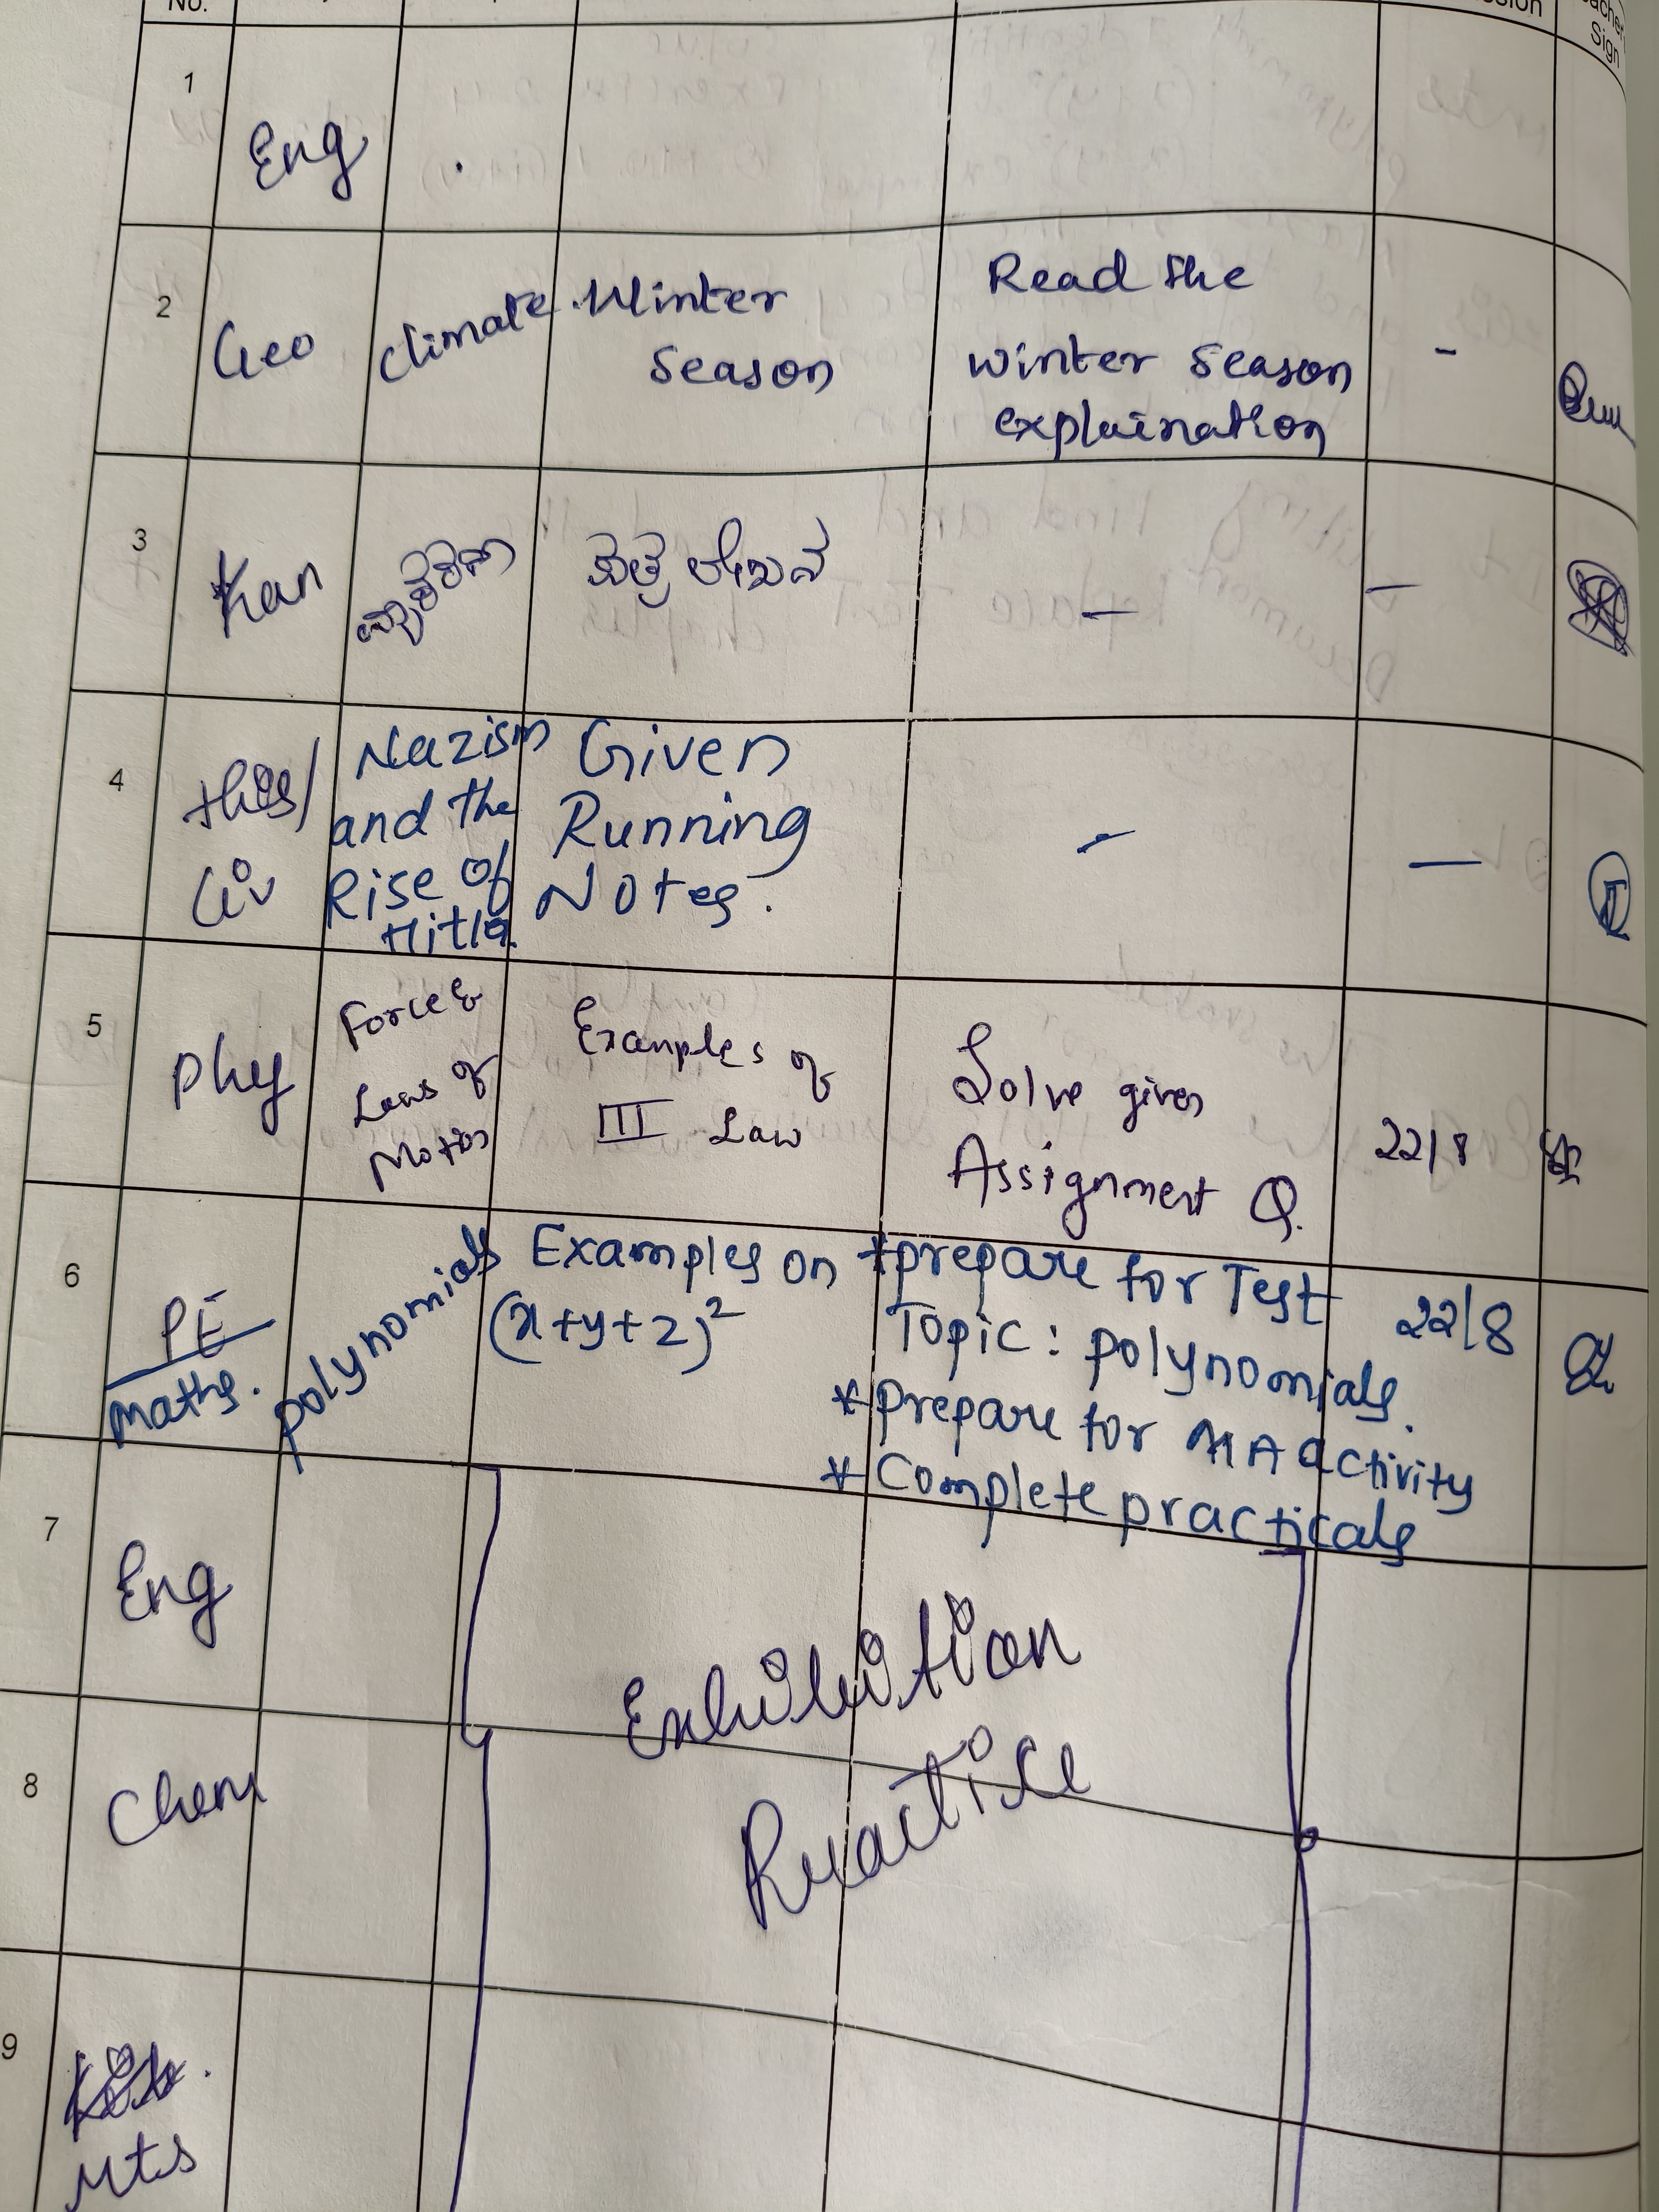 No.
Sign
1
Eng
2
Geo
climate
Winter
Season
Read the
winter season
explaination
-
3
Kan
ಪತ್ರ ಲೇಖನ
-
-
4
His/
Civ
Nazism
and the
Rise of
Hitler.
Given
Running
Notes.
-
-
5
Phy
Force &
Laws of
Motion
Examples of
III Law
Solve given
Assignment Q.
22/8
6
PE
Maths.
polynomials
Examples on
(x+y+z)²
*prepare for Test
Topic: polynomials.
*prepare for MA activity
*Complete practicals
22/8
7
Eng
Exhibition
Practice
8
Chem
9
Mts